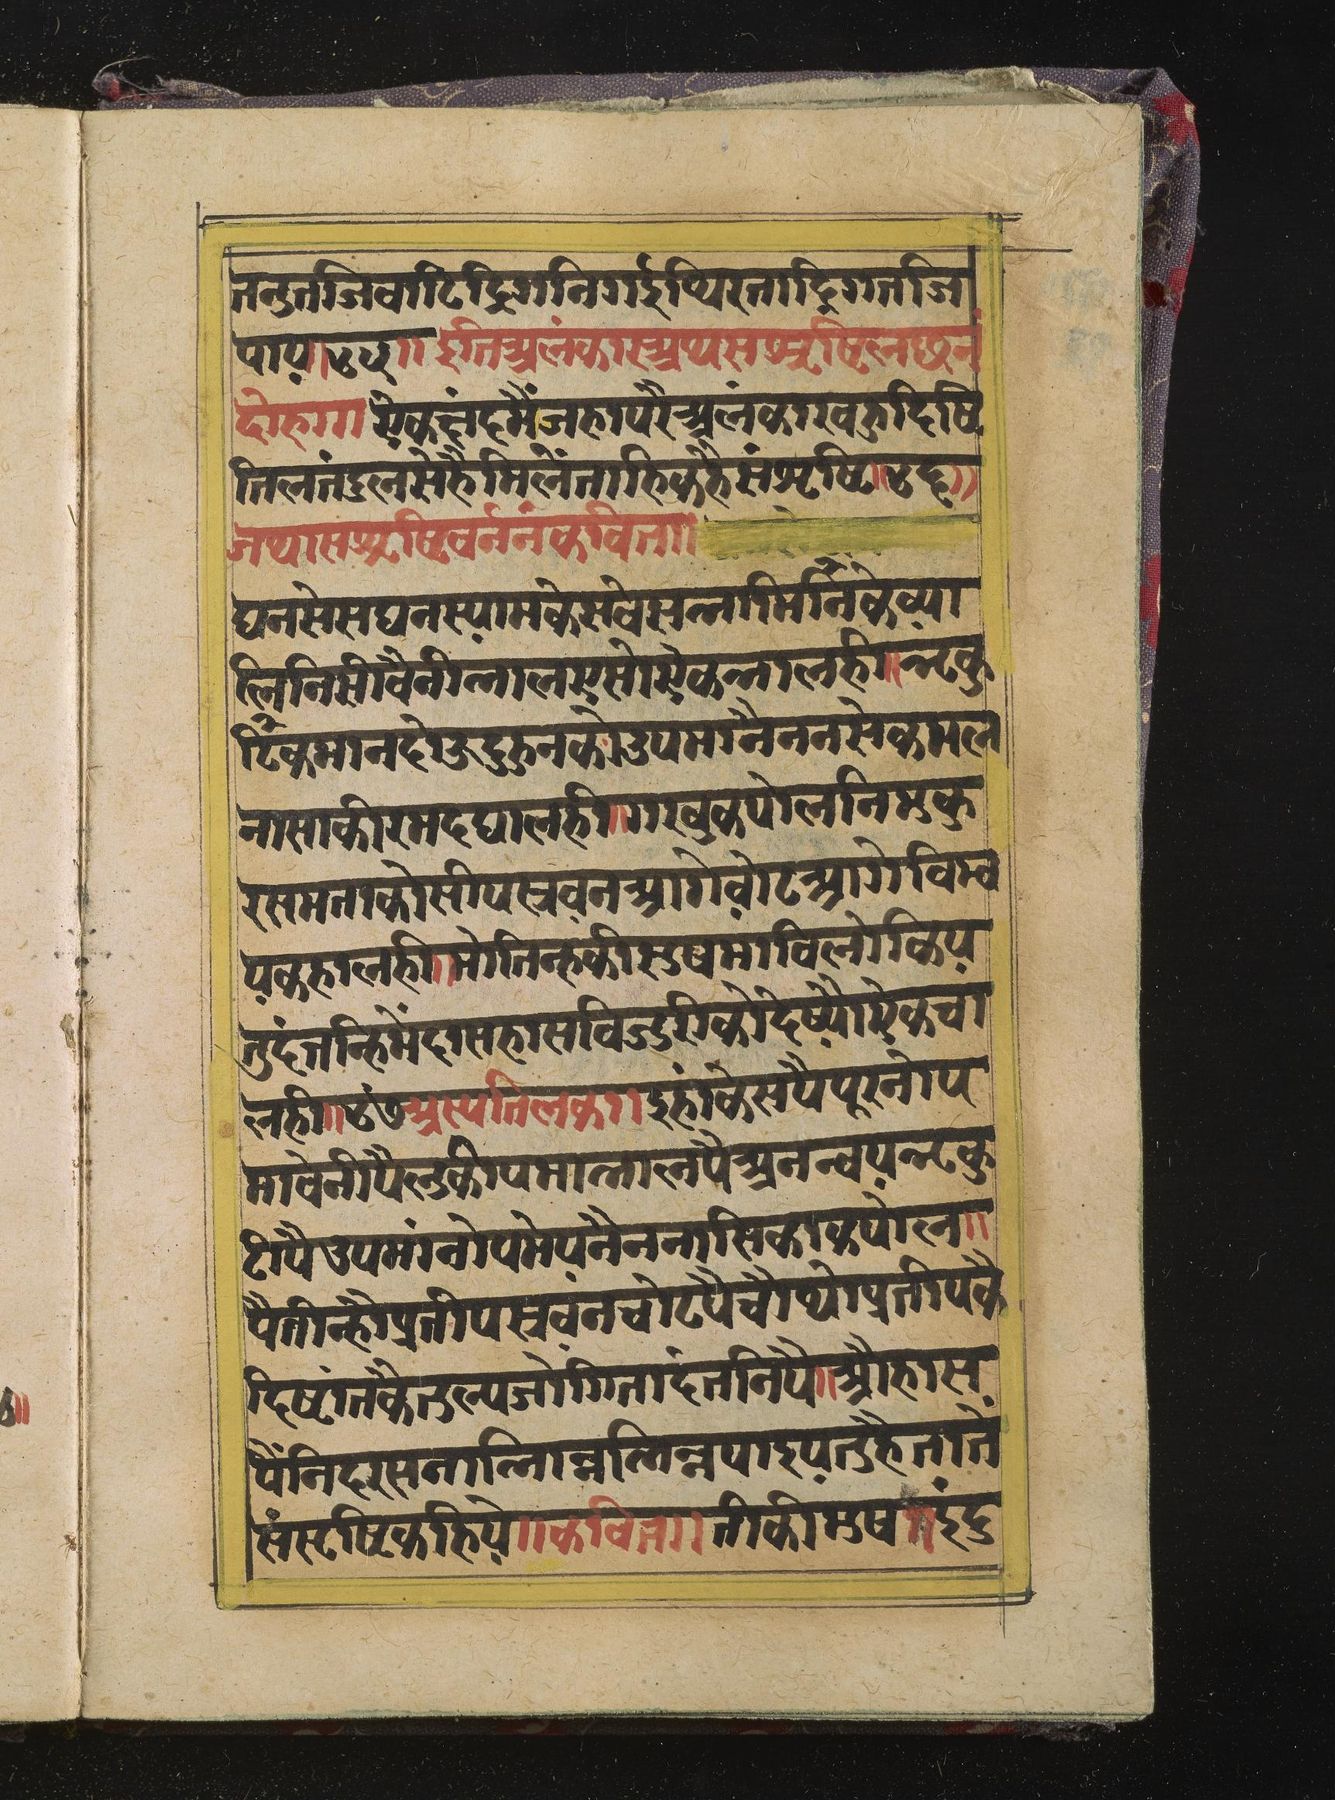 तनुतजिवाटिद्रिगनिगईप्यिरताद्रिगतजि
पाय़॥४५॥इतिअलंकारअथसंसृष्टिलछनं
दोहा॥ऐकछंदमैंजहापरैअलंकारवहुदिष्टि
तिलतंदुलसेहैमिलेंताहिकहैसंसृष्टि॥४६॥
जथासंसृष्टिवर्ननंकविता॥
घनसेसघनस्यामकेसवेसन्नामिनिकेव्या
लिनिसीवैनीन्नालएसोऐकन्नालही॥न्नकु
टिकमानदोउदुहुनकोउपमानैननसेकमल
नासाकीरमदघालही॥गरवुकपोलनिमुकु
रसमताकोसीपस्रवनआगेवोटआगेविम्व
पकहालही॥मोतिन्हकीसुषमाविलोकिय़
तुदंतन्हिमेंदासहासविजुरीकोदेष्यौऐकचा
लही॥४७अस्यतिलक॥इहांकेसपैपूरनोप
मावेनीपैलुकीपमान्नालपैअनन्वय़न्नकु
टीपैउपमांनोपमेय़नैननासिकाकपोल॥
पैतीन्हौप्रतीपस्रवनवोटपैचौथोप्रतीपकै
दिष्टांतकैतुल्यजोगितादंतनिपै॥औहास
पैंनिदरसनान्निन्ननिन्नपाइय़तुहैतातें
संस्टष्टिकहिये॥कविता॥तीकीमुष॥इंदु